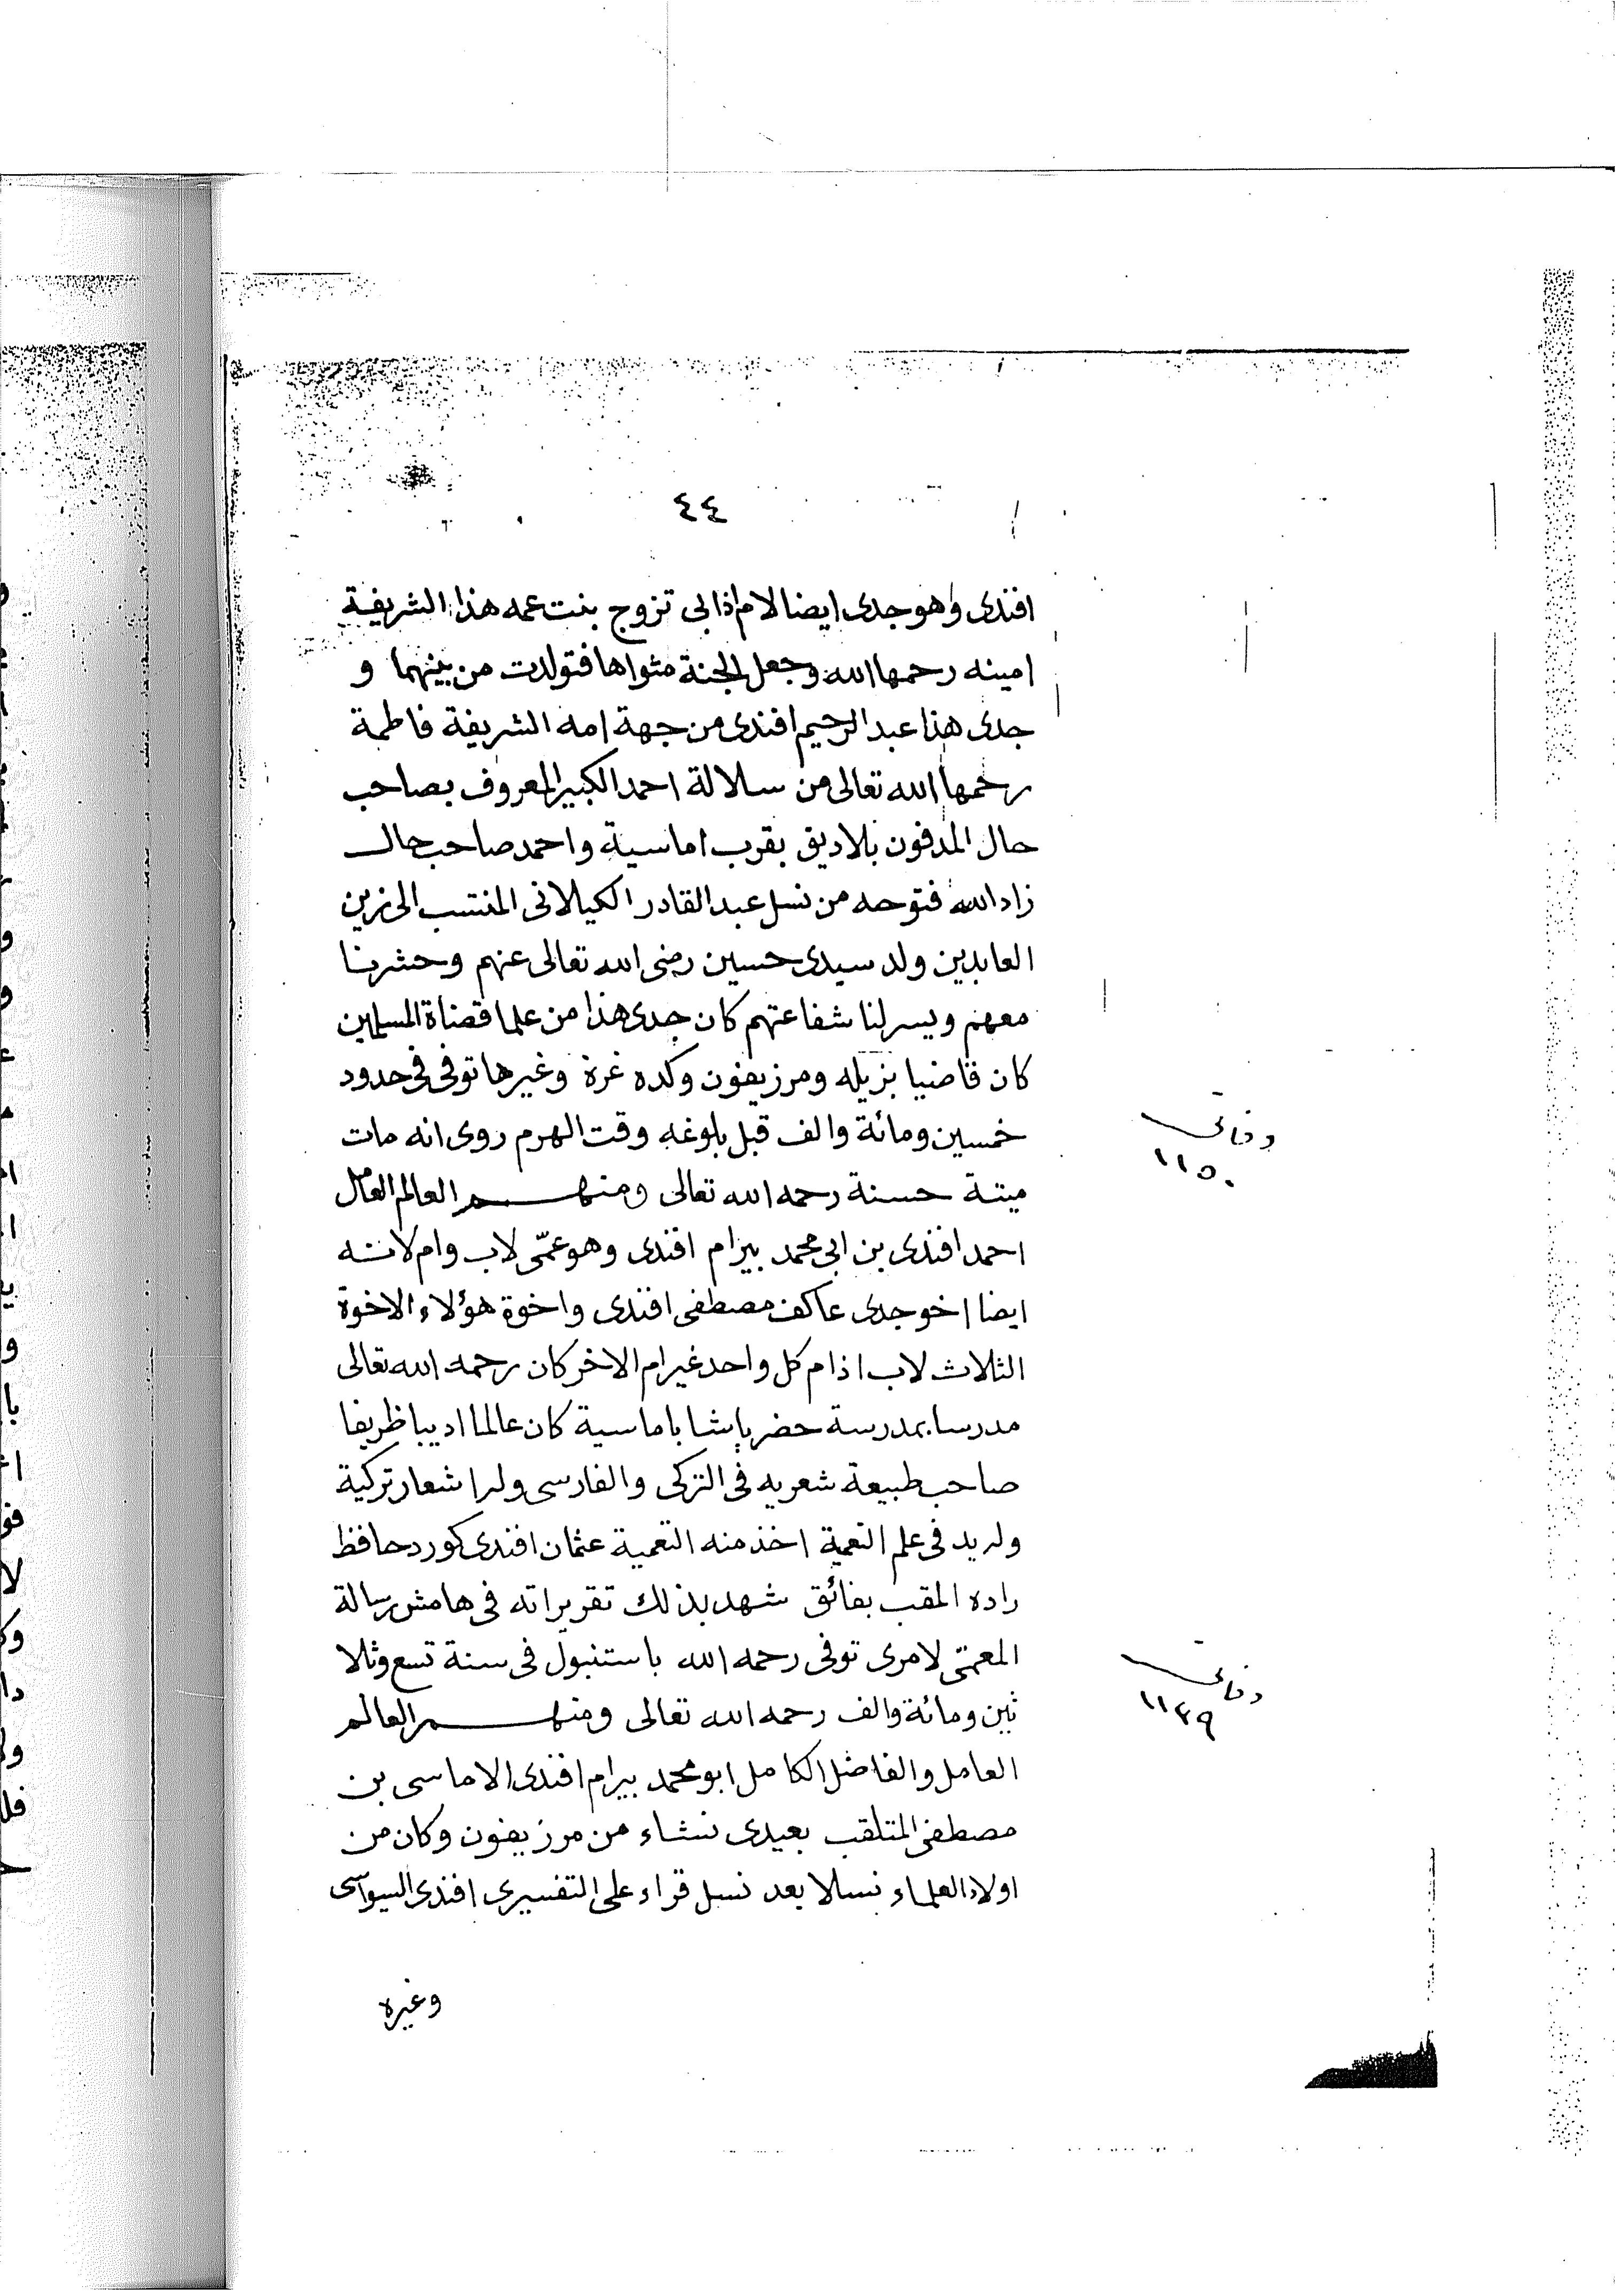 ٤٤
افندى وهو جدى ايضا لام اذ ابى تزوج بنت عمه هذا الشريفة
امينه رحمها الله وجعل الجنة مثواها فتولدت من بينهما و
جدى هذا عبد الرحيم افندى من جهة امه الشريفة فاطمة
رحمها الله تعالى من سلالة احمد الكبير المعروف بصاحب
حال المدفون بلاديق بقرب اماسية واحمد صاحب حال
زاد الله فتوحه من نسل عبد القادر الكيلانى المنتسب الى زين
العابدين ولد سيدى حسين رضى الله تعالى عنهم وحشرنا
معهم ويسر لنا شفاعتهم كان جدى هذا من علما قضاة المسلمين
كان قاضيا بزيله ومرزيفون وكده غرة وغيرها توفى فى حدود
خمسين ومائة والف قبل بلوغه وقت الهرم روى انه مات
وفات
١١٥٠
ميتة حسنة رحمه الله تعالى ومنهم العالم العامل
احمد افندى بن ابى محمد بيرام افندى وهو عمّى لاب وام لانه
ايضا اخو جدى عاكف مصطفى افندى واخوة هؤلاء الاخوة
الثلاث لاب اذ ام كل واحد غير ام الاخر كان رحمه الله تعالى
مدرسا بمدرسة حضر پاشا باماسية كان عالما اديبا ظريفا
صاحب طبيعة شعريه فى التركى والفارسى وله اشعار تركية
وله يد فى علم التعمية اخذ منه التعمية عثمان افندى كورد حافظ
زاده المقب بفائق شهد بذلك تقريراته فى هامش رسالة
المعمّى لامرى توفى رحمه الله باستنبول فى سنة تسع وثلا
وفات
١١٣٩
ثين ومائة والف رحمه الله تعالى ومنهم العالم
العامل والفاضل الكامل ابو محمد بيرام افندى الاماسى بن
مصطفى المتلقب بعيدى نشاء من مرزيفون وكان من
اولاد العلماء نسلا بعد نسل قراء على التفسيرى افندى السيواسى
وغيره